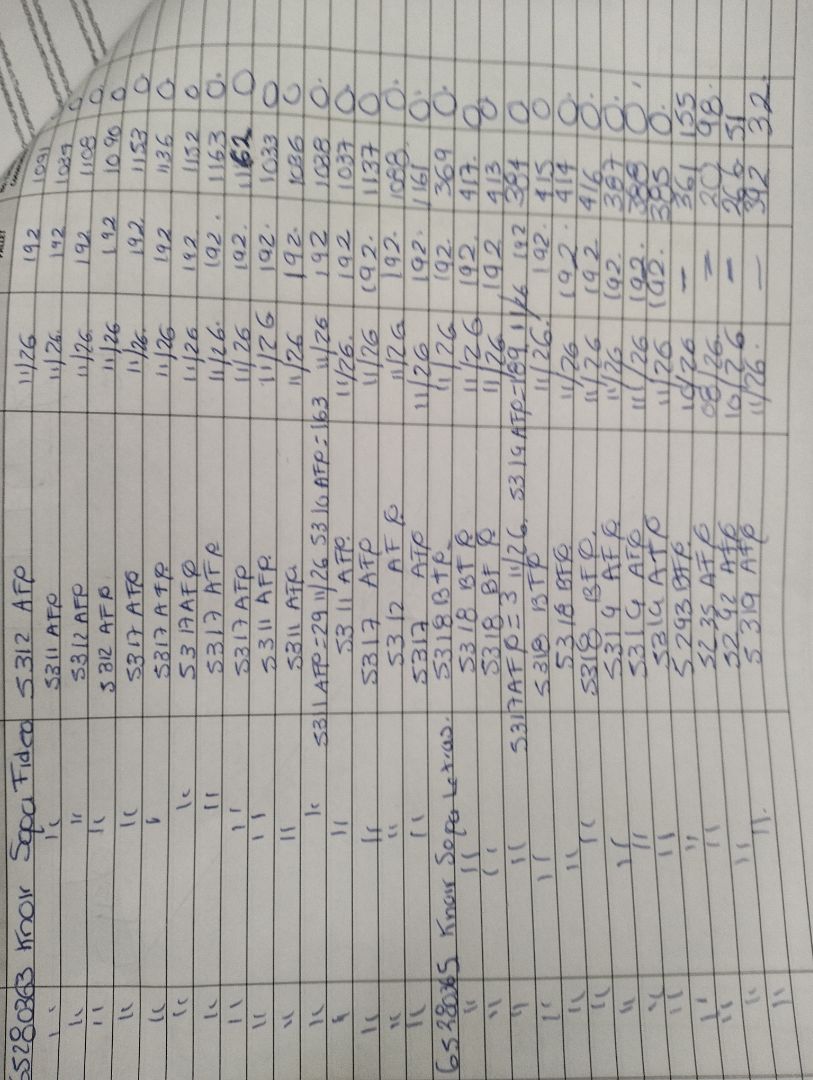 65280363 Knorr Sopa Fideo 5312 AFP 11/26 192 1091 0
" " 5311 AFP 11/26. 192 1039 0
" " 5312 AFP 11/26. 192 1108 0
" " 5312 AFP 11/26 192 1090 0
" " 5317 AFP 11/26. 192. 1153 0
" " 5317 AFP. 11/26 192 1136 0.
" " 5317 AFP 11/26 192 1152 0
" " 5317 AFP 11/26. 192. 1163 0.
" " 5317 AFP 11/26 192. 1162 0
" " 5311 AFP 11/26 192. 1033 0
" " 5311 AFP. 11/26 192. 1036 0
" " 5311 AFP=29 11/26 5316 AFP=163 11/26 192 1038 0.
" " 5311 AFP. 11/26. 192 1037 0
" " 5317 AFP 11/26 192. 1137 0
" " 5312 AFP 11/26 192. 1088. 0.
" " 5317 AFP 11/26 192. 1161 0.
65280365 Knorr Sopa Letras. 5318 BTP 11/26 192. 369 0.
" " 5318 BTP 11/26 192. 417. 0
" " 5318 BTP 11/26. 192 413 0
" " 5317 AFP=3 11/26. 5319 AFP=189 11/26 192 384 0
" " 5318 BTP 11/26. 192. 415 0
" " 5318 BTP 11/26 192. 414 0.
" " 5318 BTP. 11/26 192 416 0.
" " 5314 AFP 11/26 192. 387 0.
" " 5314 AFP 11/26 192. 388 0.
" " 5314 AFP 11/26 192. 385 0.
" " 5293 BTP 10/26 — 361 155
" " 5235 AFP 08/26. — 20 98.
" " 5292 AFP 10/26 — 51
" " 5319 AFP 11/26. — 392 32.